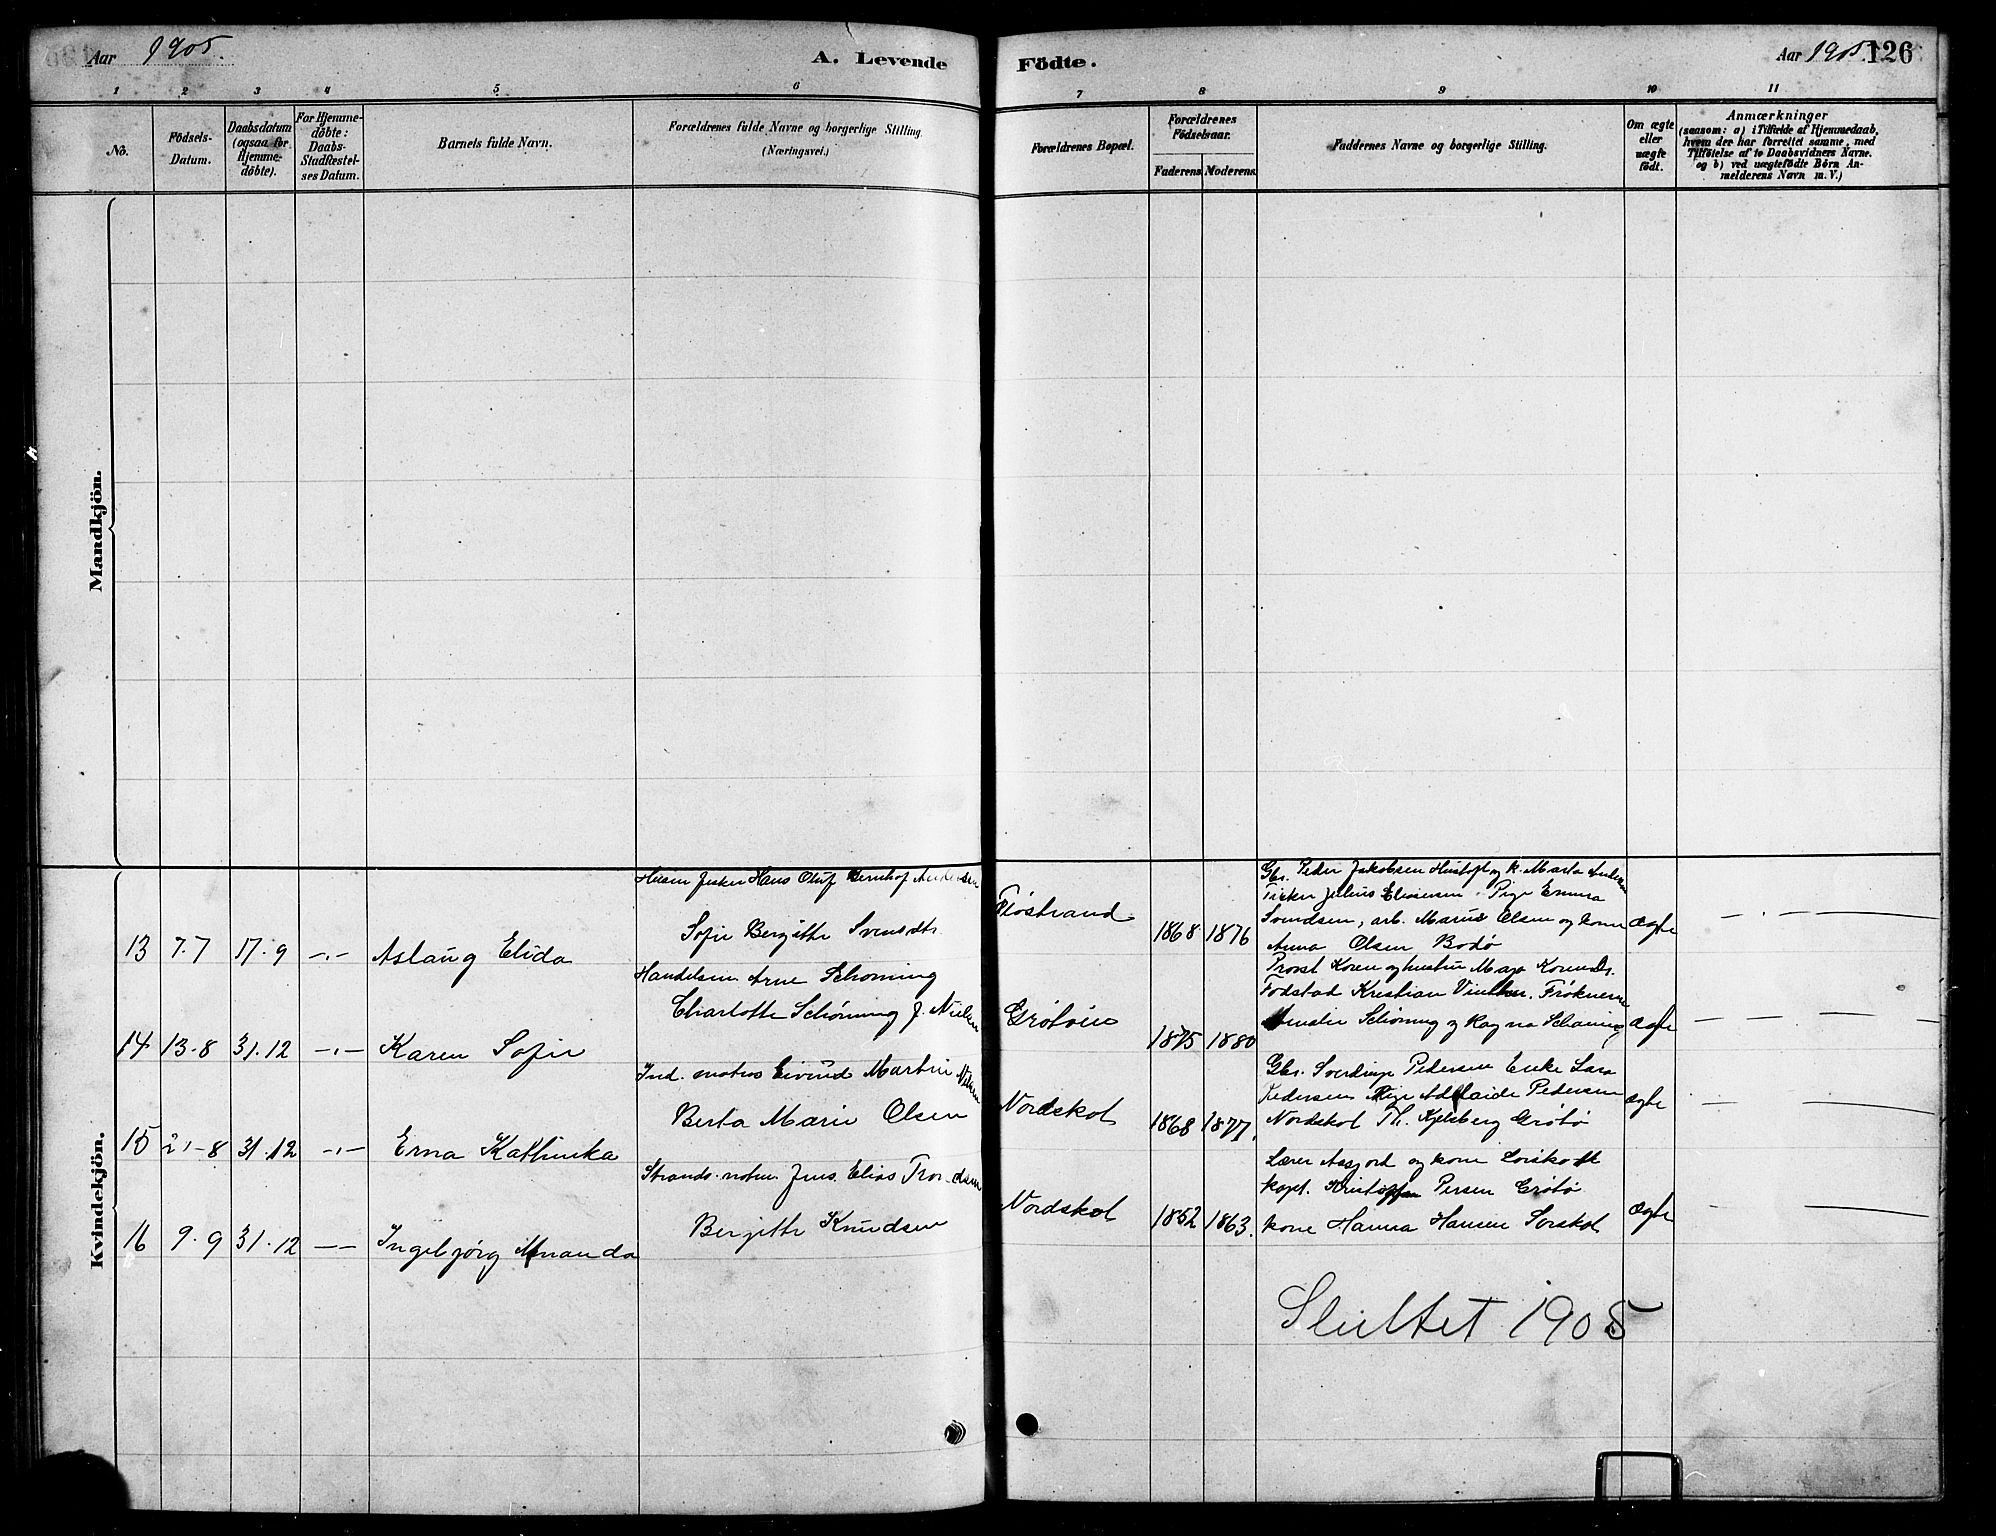 Aar 1905.
A. Levende
Födte.
Aar 1905. 126
1 2 3 4 5 6
7 8 9 10 11
No.
Födsels-
Datum.
Daabsdatum
(ogsaa for
Hjemme-
döbte).
For Hjemme-
döbte:
Daabs-
Stadfæstel-
ses Datum.
Barnets fulde Navn.
Forældrenes fulde Navne og borgerlige Stilling.
(Næringsvei.)
Forældrenes Bopæl.
Forældrenes
Födselsaar.
Faderens Moderens
Faddernes Navne og borgerlige Stilling.
Om ægte
eller
uægte
født.
Anmærkninger
(saasom: a) i Tilfælde af Hjemmedaab,
hvem der har forrettet samme, med
Tilföielse af to Daabsvidners Navne.
og b) ved uægtefödte Börn An-
melderens Navn m. V.)
Mandkjön.
Kvindekjön.
13 7.7 17.9 -"- Aslaug Elida
Husm fisker Hans Oluf Bernhof Andersen
Sofie Bergithe Svendsdtr.
Flöstrand 1868 1876
Gbr. Peder Jakobsen og k. Marta
Fisker Julius Eliasen Pige Emma
Svendsen, arb. Marius Olsen og kone
Anna Olsen Bodø
Ægte
14 13-8 31.12 -"- Karen Sofie
Handelsm Arne Schøning
Charlotte Schøning f. Nielsen
Grøtøen 1875 1880
Provst Koren og hustru
Kristian Frøknerne
Amalie Schøning og Ragna Schøning
Ægte
15 21-8 31.12 -"- Erna Kathinka
Ind. Eivind Martin
Berta Marie Olsen
Nordskot 1868 1877.
Gbr. Sverdrup Pedersen Enke Sara
Pedersen Pige Adelaide Pedersen
Nordskot Th. Kjelsberg Grøtø
Ægte
16 9.9 31.12 -- Ingebjørg Amanda
Jens Elias
Bergithe Knudsen
Nordskot 1852 1863.
Lærer og kone
Kristoffer Persen Grøtø
kone Hanna Hansen Sørskot
Ægte
Sluttet 1905